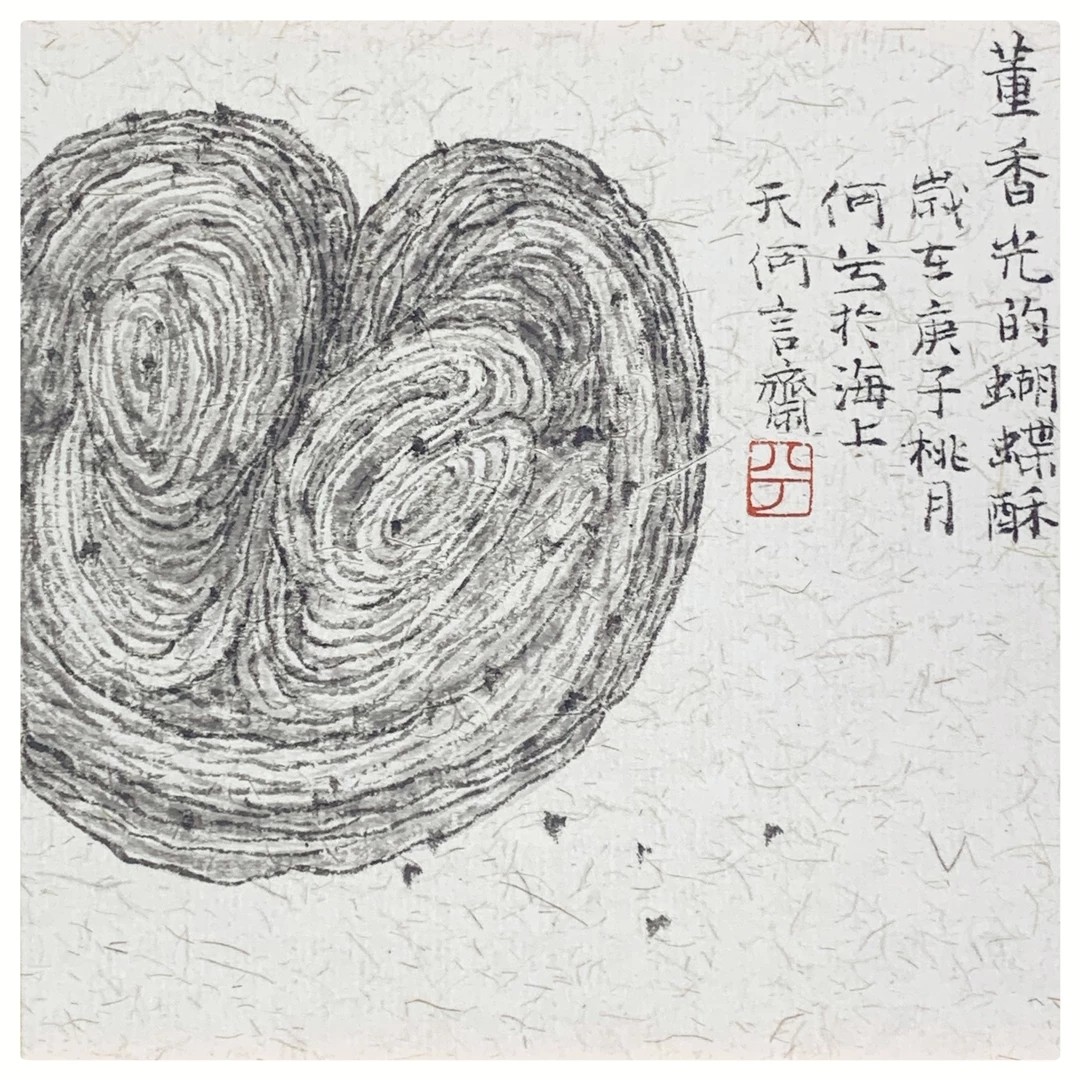 董香光的蝴蝶酥
歲在庚子桃月
何兮於海上
天何言齋